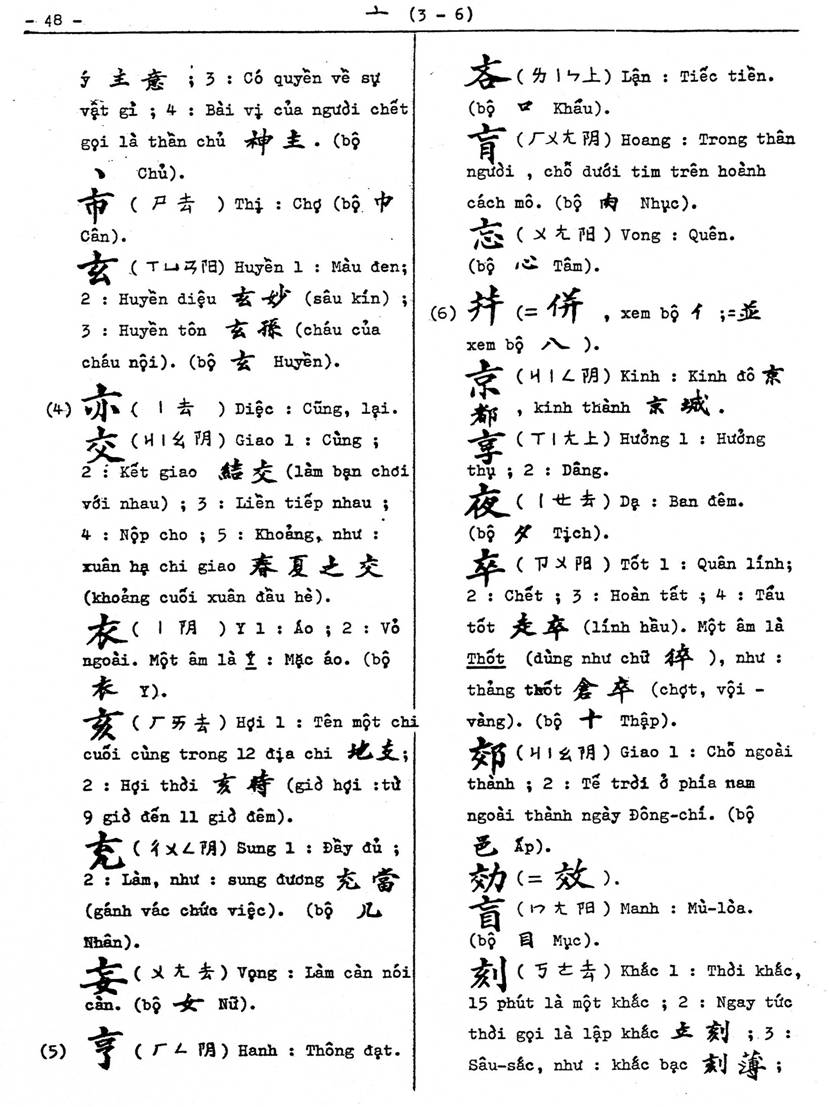 - 48 -
亠 (3 - 6)
主意 ; 3 : Có quyền về sự
vật gì ; 4 : Bài vị của người chết
gọi là thần chủ 神主 . (bộ
丶 Chủ).
市 ( ㄕ去 ) Thị : Chợ (bộ 巾
Cân).
玄 ( ㄒㄩㄢ阳) Huyền 1 : Màu đen;
2 : Huyền diệu 玄妙 (sâu kín) ;
3 : Huyền tôn 玄孫 (cháu của
cháu nội). (bộ 玄 Huyền).
(4) 亦 ( ㄧ去 ) Diệc : Cũng, lại.
交 (ㄐㄧㄠ阴) Giao 1 : Cùng ;
2 : Kết giao 結交 (làm bạn chơi
với nhau) ; 3 : Liền tiếp nhau ;
4 : Nộp cho ; 5 : Khoảng, như :
xuân hạ chi giao 春夏之交
(khoảng cuối xuân đầu hè).
衣 ( ㄧ阴 ) Y 1 : Áo ; 2 : Vỏ
ngoài. Một âm là Ý : Mặc áo. (bộ
衣 Y).
亥 (ㄏㄞ去) Hợi 1 : Tên một chi
cuối cùng trong 12 địa chi 地支;
2 : Hợi thời 亥時 (giờ hợi :từ
9 giờ đến 11 giờ đêm).
充 (ㄔㄨㄥ阴) Sung 1 : Đầy đủ ;
2 : Làm, như : sung đương 充當
(gánh vác chức việc). (bộ 儿
Nhân).
妄 (ㄨㄤ去) Vọng : Làm càn nói
càn. (bộ 女 Nữ).
(5) 亨 (ㄏㄥ阴) Hanh : Thông đạt.
吝 (ㄌㄧㄣ上) Lận : Tiếc tiền.
(bộ 口 Khẩu).
肓 (ㄏㄨㄤ阴) Hoang : Trong thân
người , chỗ dưới tim trên hoành
cách mô. (bộ 肉 Nhục).
忘 (ㄨㄤ阳) Vong : Quên.
(bộ 心 Tâm).
(6) 幷 (= 併 , xem bộ 亻 ;=並
xem bộ 八 ).
京 (ㄐㄧㄥ阴) Kinh : Kinh đô 京
都 , kinh thành 京城 .
享 (ㄒㄧㄤ上) Hưởng 1 : Hưởng
thụ ; 2 : Dâng.
夜 (ㄧㄝ去) Dạ : Ban đêm.
(bộ 夕 Tịch).
卒 (ㄗㄨ阳) Tốt 1 : Quân lính;
2 : Chết ; 3 : Hoàn tất ; 4 : Tẩu
tốt 走卒 (lính hầu). Một âm là
Thốt (dùng như chữ 猝 ), như :
thảng thốt 倉卒 (chợt, vội -
vàng). (bộ 十 Thập).
郊 (ㄐㄧㄠ阴) Giao 1 : Chỗ ngoài
thành ; 2 : Tế trời ở phía nam
ngoài thành ngày Đông-chí. (bộ
邑 Ấp).
効 (= 效 ).
盲 (ㄇㄤ阳) Manh : Mù-lòa.
(bộ 目 Mục).
刻 (ㄎㄜ去) Khắc 1 : Thời khắc,
15 phút là một khắc ; 2 : Ngay tức
thời gọi là lập khắc 立刻 ; 3 :
Sâu-sắc, như : khắc bạc 刻薄 ;